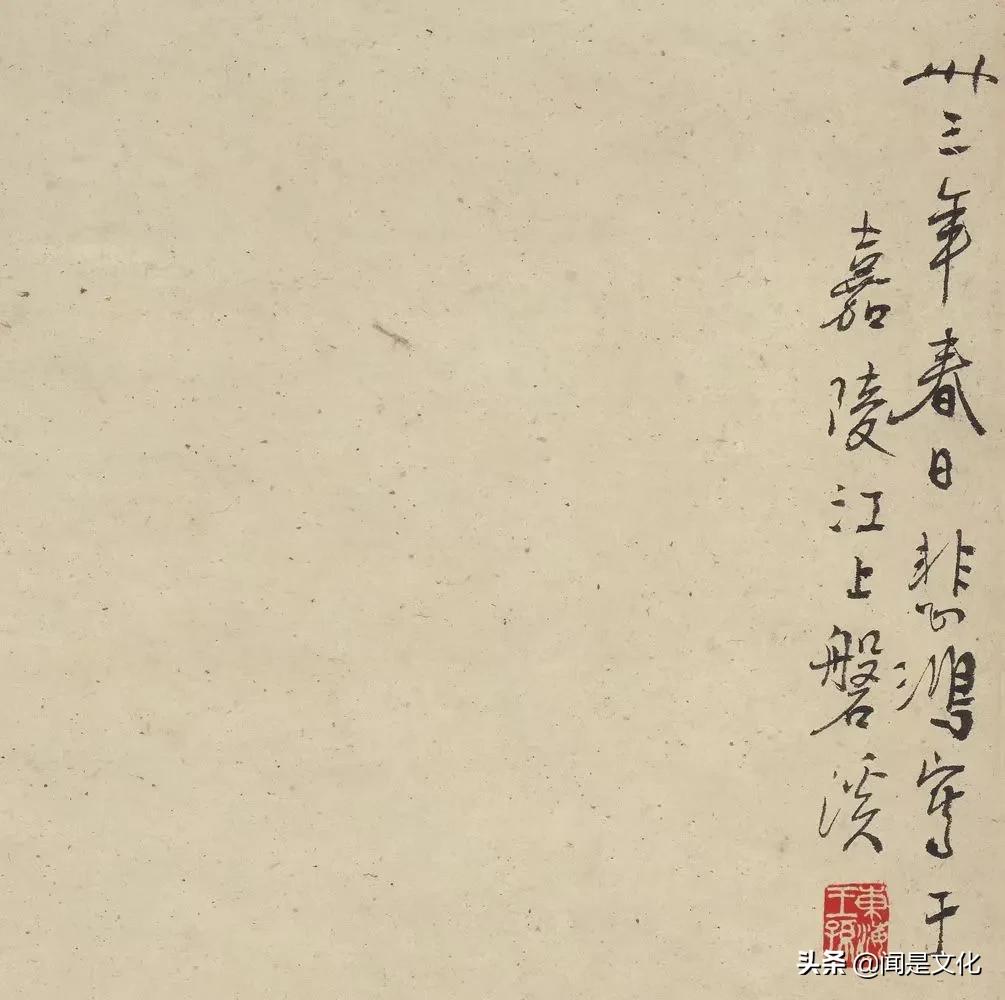 卅三年春日悲鴻寫于
嘉陵江上磐溪
東海王孫
头条 @闻是文化